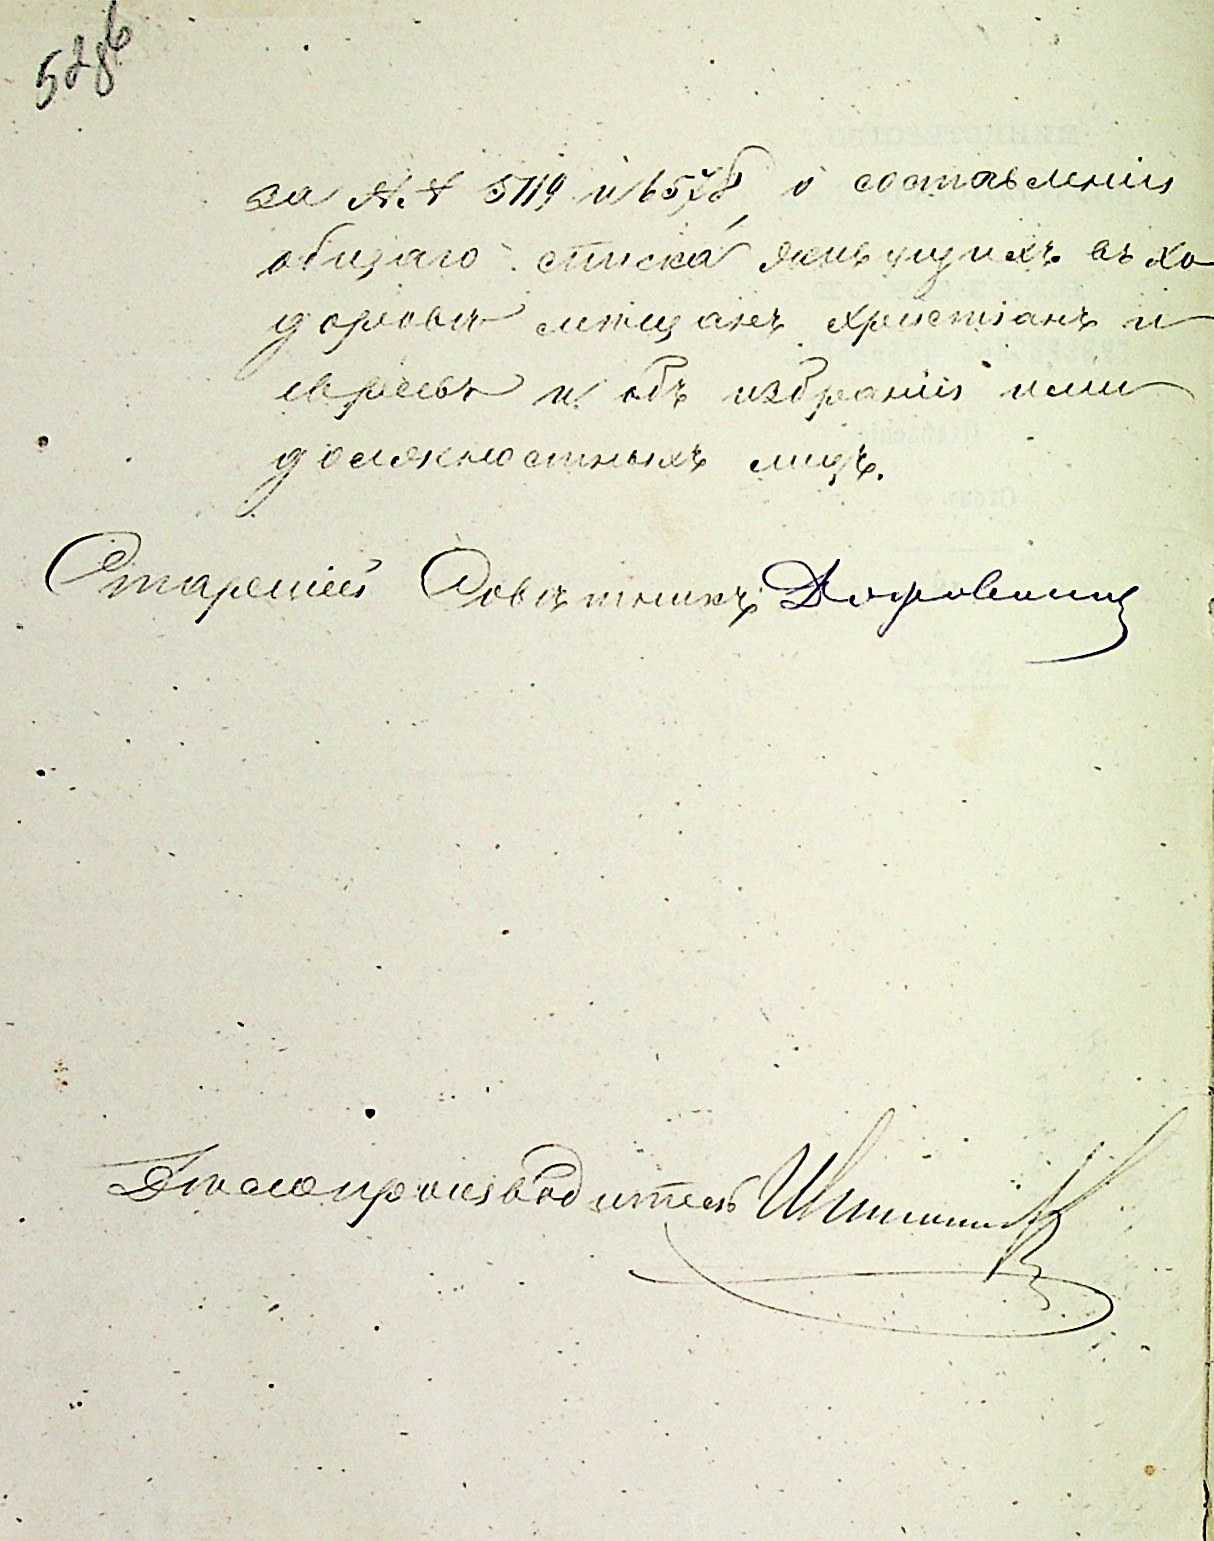 528б
за №№ 5719 и 6578, о составленіи
общаго списка живущихъ въ Хо
дорковѣ мѣщанъ христіанъ и
евреевъ и объ избраніи ими
должностныхъ лицъ.
Старшій Совѣтникъ
Дѣлопроизводитель